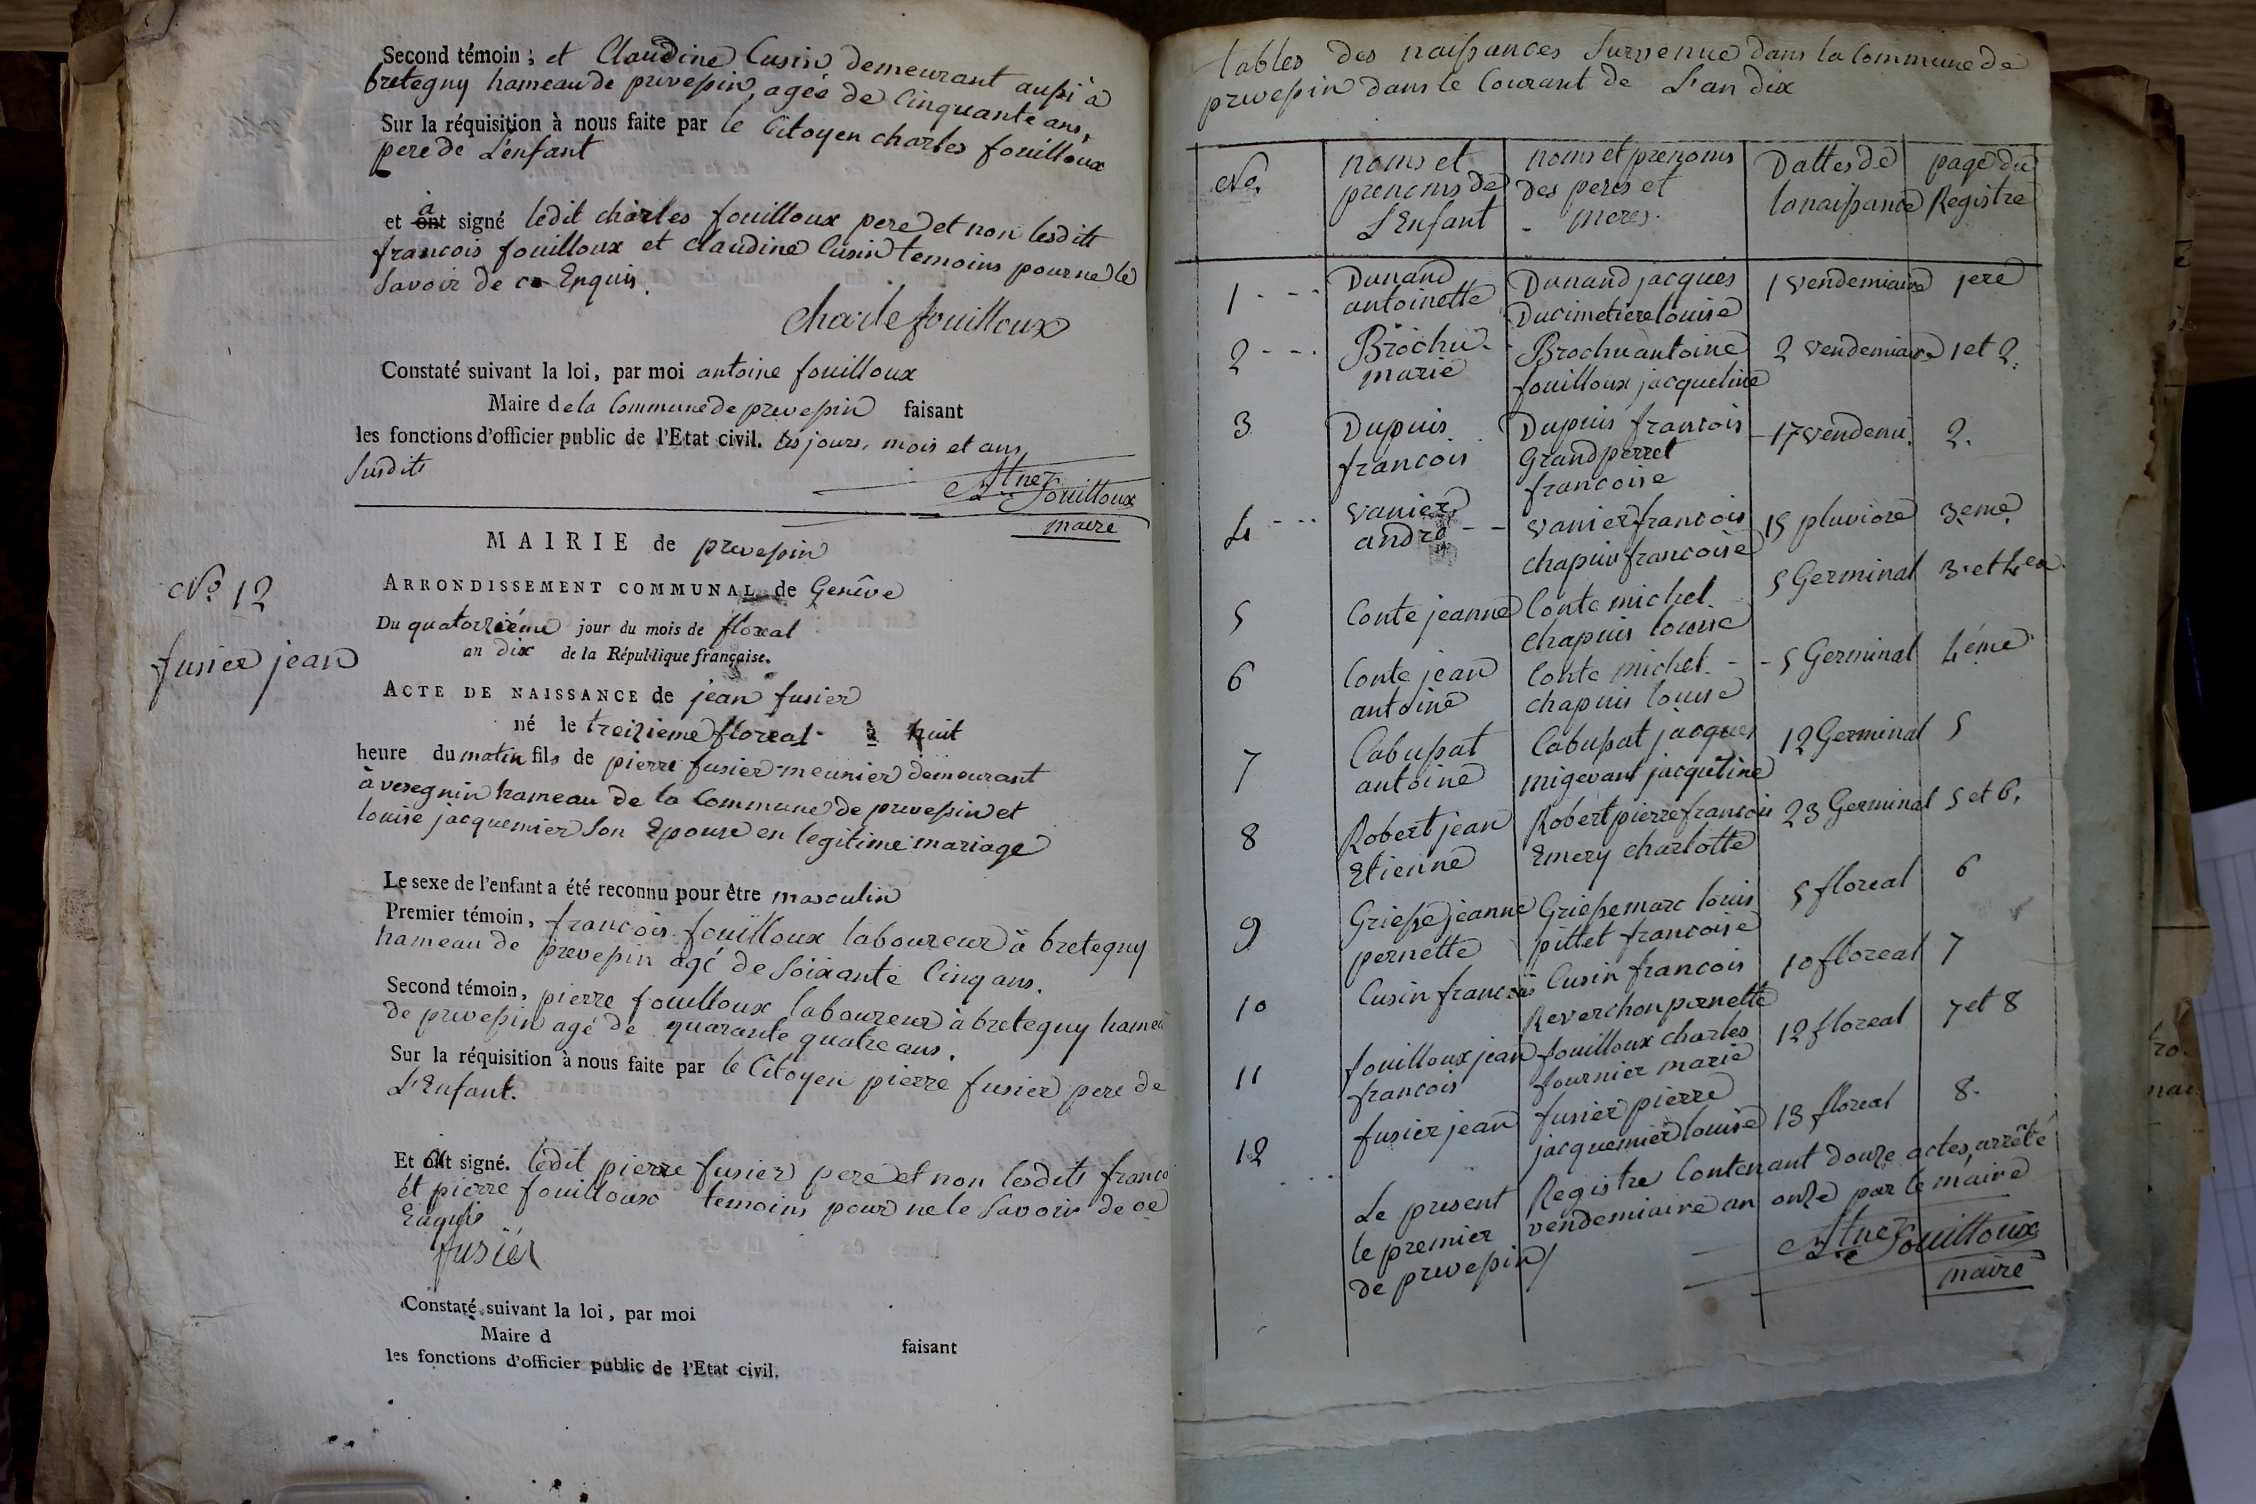 Second témoin ; et Claudine Cusin demeurant aussi à
bretegny hameau de prevessin, agée de Cinquante ans,
Sur la réquisition à nous faite par le Citoyen charles fouilloux
pere de L'enfant
et a ont signé ledit charles fouilloux pere et non lesdits
francois fouilloux et claudine Cusin temoins pour ne le
savoir de ce Enquis.
charle fouilloux
Constaté suivant la loi, par moi antoine fouilloux
Maire de la Commune de prevessin faisant
les fonctions d'officier public de l'Etat civil. les jours, mois et ans
susdits
Atne fouilloux
maire
MAIRIE de prevessin
N.o 12
fusier jean
ARRONDISSEMENT COMMUNAL de Genêve
Du quatorzième jour du mois de floreal
an dix de la République française.
ACTE DE NAISSANCE de jean fusier
né le treizieme floreal à huit
heure du matin fils de pierre fusier meunier demeurant
à veregnin hameau de la Commune de prevessin et
louise jacquemier son Epouse en legitime mariage
Le sexe de l'enfant a été reconnu pour être masculin
Premier témoin, francois fouilloux laboureur à bretegny
hameau de prevessin agé de soixante Cinq ans.
Second témoin, pierre fouilloux laboureur à bretegny hameau
de prevessin agé de quarante quatre ans.
Sur la réquisition à nous faite par le Citoyen pierre fusier pere de
L'Enfant.
Et a ont signé. ledit pierre fusier pere et non lesdits franco
et pierre fouilloux temoins pour ne le savoir de ce
Enquis
fusier
Constaté suivant la loi, par moi
Maire d faisant
les fonctions d'officier public de l'Etat civil.
tables des naissances survenue dans la Commune de
prevessin dans le Courant de L'an dix
No. noms et prenoms de L'Enfant noms et prenoms des peres et meres. Dattes de la naissance page du Registre
1 Dunand antoinette Dunand jacques Ducimetiere louise 1 vendemiaire 1ere
2 Brochu marie Brochu antoine fouilloux jacqueline 2 vendemiaire 1 et 2.
3 Dupuis francois Dupuis francois Grandperret francoise 17 vendemi. 2.
4 vanier andré vanier francois chapuis francoise 15 pluviose 3eme.
5 Conte jeanne Conte michel chapuis louise 5 Germinal 3. et 4em
6 Conte jean antoine Conte michel chapuis louise 5 Germinal 4éme
7 Cabussat antoine Cabussat jacques migevant jacqueline 12 Germinal 5
8 Robert jean Etienne Robert pierre francois Emery charlotte 23 Germinal 5 et 6.
9 Griesse jeanne pernette Griesse marc louis pittet francoise 5 floreal 6
10 Cusin francois Cusin francois Reverchon pernette 10 floreal 7
11 fouilloux jean francois fouilloux charles fournier marie 12 floreal 7 et 8
12 fusier jean fusier pierre jacquemier louise 13 floreal 8.
Le present Registre Contenant douze actes, arrêté
le premier vendemiaire an onze par le maire
de prevessin/
Atne fouilloux
maire